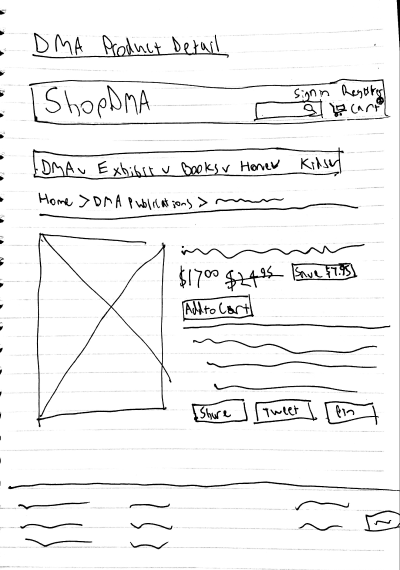 DMA Product Detail
ShopDMA
Sign in Register
Cart
DMA Exhibist Books Home Kids
Home > DMA Publications >
$17⁰⁰ $24⁹⁵ Save $7.95
Add to Cart
Share Tweet Pin